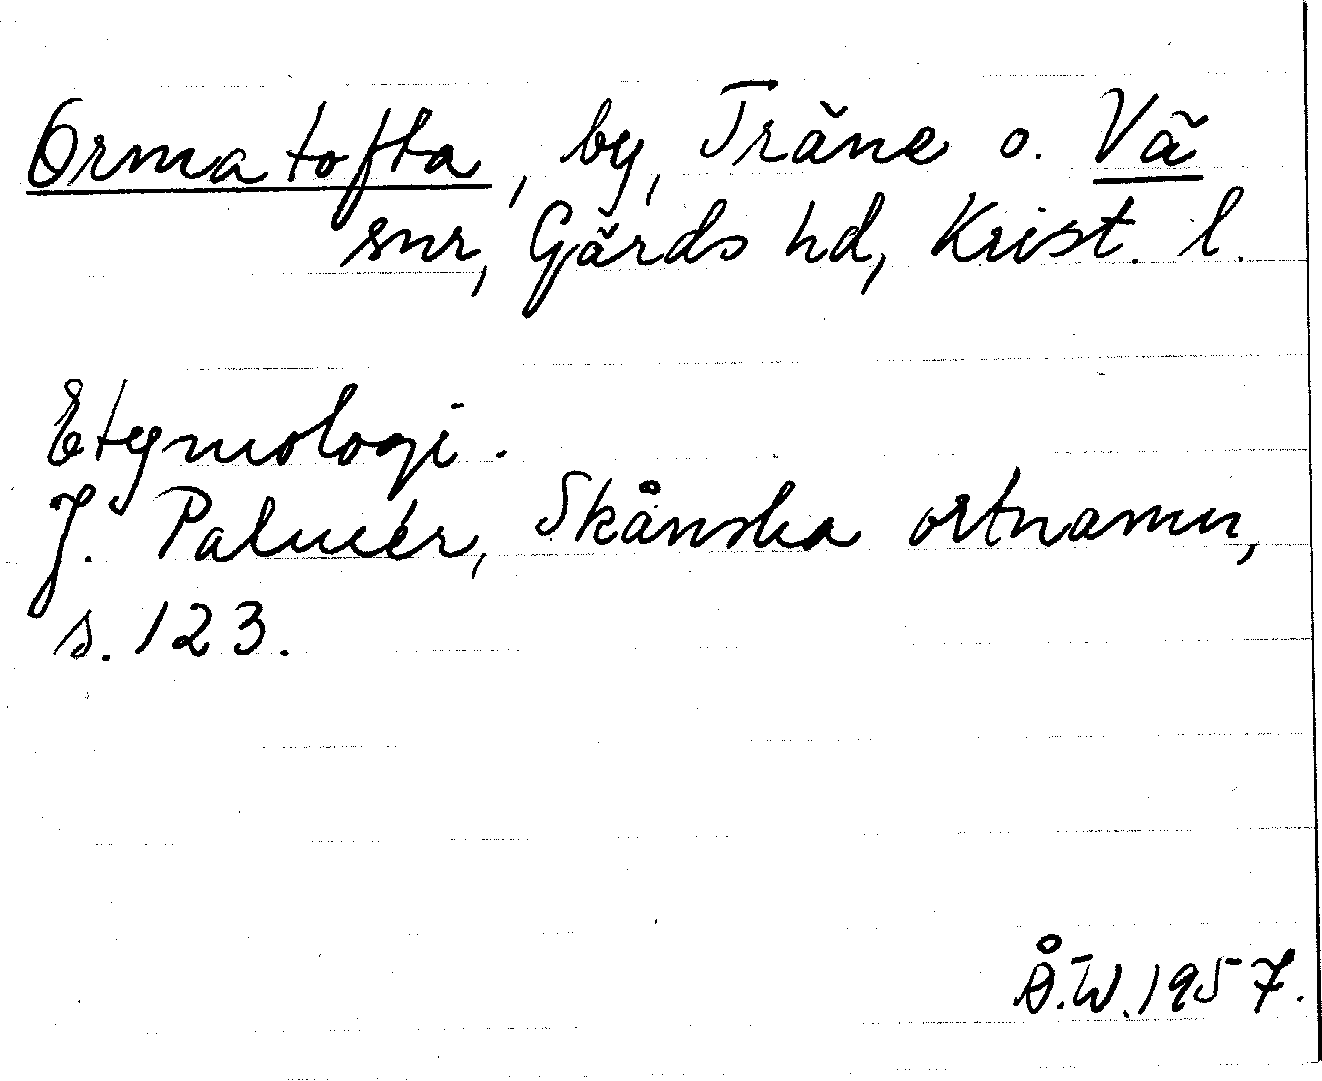 Ormatofta, by, Träne o. Vä
snr, Gärds hd, Krist. l.
Etymologi.
J. Palmér, Skånska ortnamn,
s. 123.
Å.W. 1957.